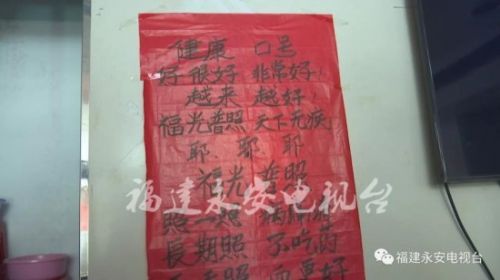 健康 口号
好 很好 非常好,
越来 越好,
福光普照 天下无疾
耶、耶、耶
福光 普照
照一照
長期照 不吃药
照 更好
福建永安电视台
福建永安电视台